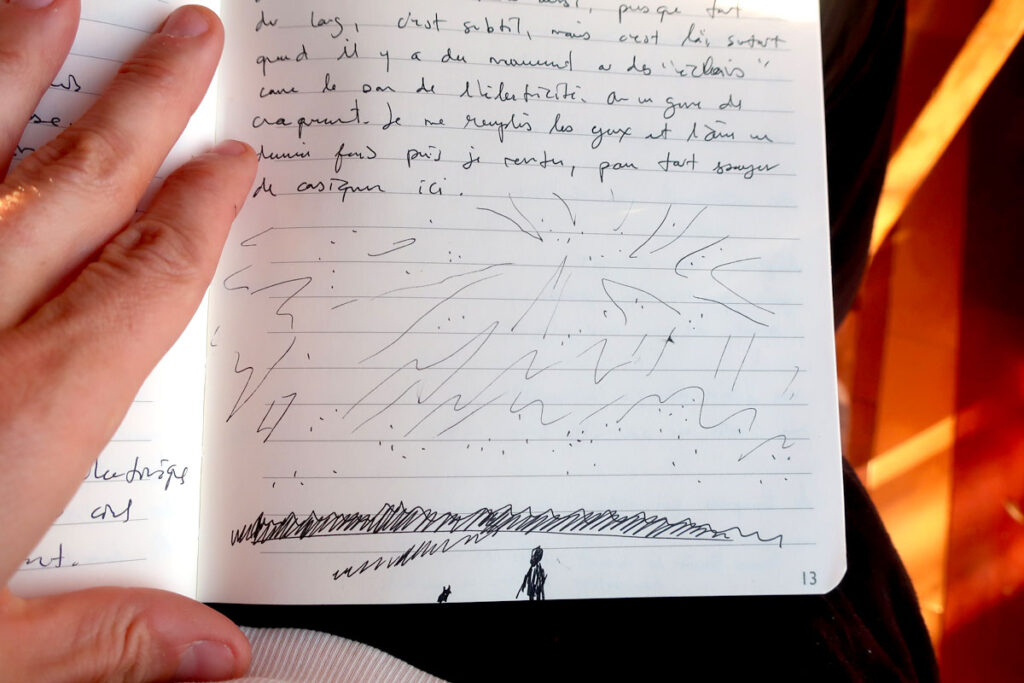 , puisque tout
du long, c'est subtil, mais c'est là, surtout
quand il y a du mouvement a des "éclairs"
comme le son de l'électricité. Ou un genre de
craquement. Je me remplis les yeux et l'âme une
dernière fois puis je rentre, pour tout
de consigner ici.
électrique
ciel
13